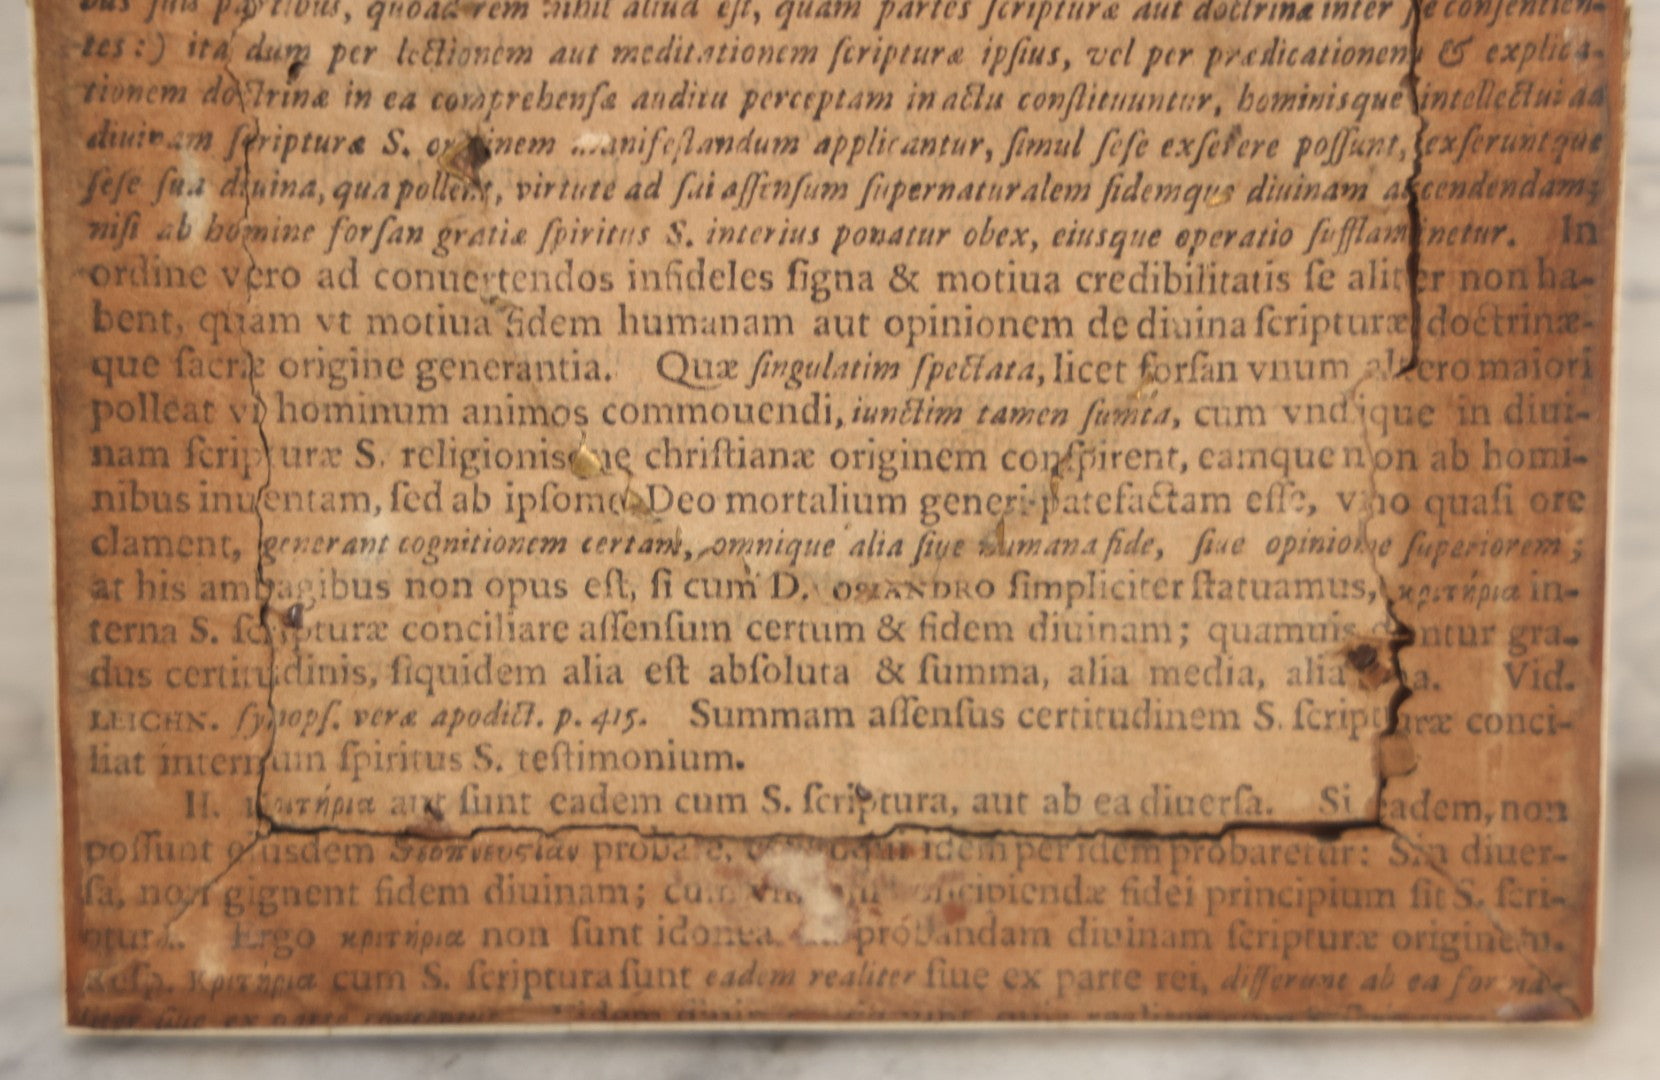 bus suis partibus, quoad rem nihil aliud eſt, quam partes ſcripturæ aut doctrinæ inter ſe conſentien-
tes:) ita dum per lectionem aut meditationem ſcripturæ ipſius, vel per prædicationem & explica-
tionem doctrinæ in ea comprehenſæ auditu perceptam in actu conſtituuntur, hominisque intellectui ad
diuinam ſcripturæ S. originem manifeſtandum applicantur, ſimul ſeſe exſerere poſſunt, exſeruntque
ſeſe ſua diuina, qua pollent, virtute ad ſui aſſenſum ſupernaturalem fidemque diuinam accendendam;
niſi ab homine forſan gratiæ ſpiritus S. interius ponatur obex, eiusque operatio ſufflaminetur. In
ordine vero ad conuertendos infideles ſigna & motiua credibilitatis ſe aliter non ha-
bent, quam vt motiua fidem humanam aut opinionem de diuina ſcripturæ doctrinæ-
que ſacræ origine generantia. Quæ ſingulatim ſpectata, licet forſan vnum altero maiori
polleat vi hominum animos commouendi, iunctim tamen ſumta, cum vndique in diui-
nam ſcripturæ S. religionisque chriſtianæ originem conſpirent, eamque non ab homi-
nibus inuentam, ſed ab ipſomet Deo mortalium generi patefactam eſſe, vno quaſi ore
clament, generant cognitionem certam, omnique alia ſiue humana fide, ſiue opinione ſuperiorem;
at his ambagibus non opus eſt, ſi cum D. OSIANDRO ſimpliciter ſtatuamus, κριτήρια in-
terna S. ſcripturæ conciliare aſſenſum certum & fidem diuinam; quamuis dentur gra-
dus certitudinis, ſiquidem alia eſt abſoluta & ſumma, alia media, alia Vid.
LEICHN. ſynopſ. veræ apodict. p. 415. Summam aſſenſus certitudinem S. ſcripturæ conci-
liat internum ſpiritus S. teſtimonium.
II. κριτήρια aut ſunt eadem cum S. ſcriptura, aut ab ea diuerſa. Si eadem, non
poſſunt eiusdem θεοπνευστίαν probare, quoqui idem per idem probaretur: Sin diuer-
ſa, non gignent fidem diuinam; cum concipiendæ fidei principium ſit S. ſcri-
ptura. Ergo κριτήρια non ſunt idonea ad probandam diuinam ſcripturæ originem.
Reſp. Κριτήρια cum S. ſcriptura ſunt eadem realiter ſiue ex parte rei, differunt ab ea forma-
liter ſiue ex parte